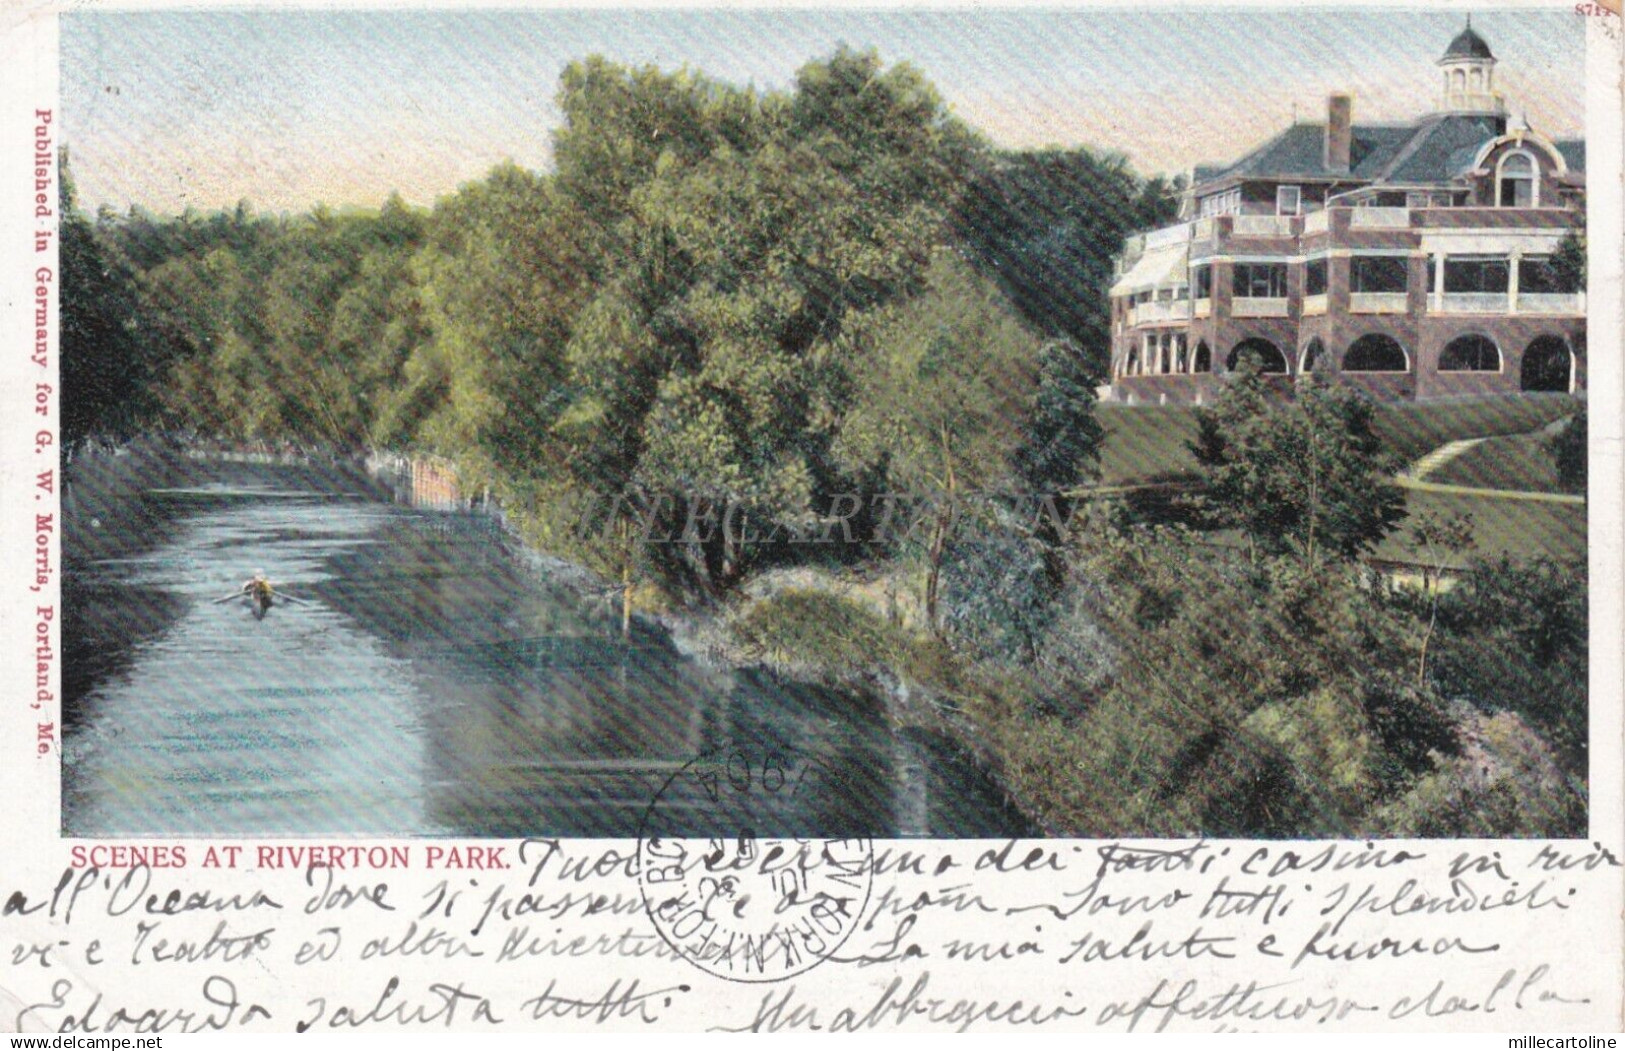 8714
Published in Germany for G. W. Morris, Portland, Me.
MILLECARTOLINE
1904
SCENES AT RIVERTON PARK. Puoi vedere uno dei tanti casino in riv
all'Oceano dove si passano le ore pom Sono tutti splendidi
vi è Teatro ed altri divertimenti La mia salute è buona
Edoardo saluta tutti Un abbraccio affettuoso dalla
N.Y. FOR. B'CH
YORK
millecartoline